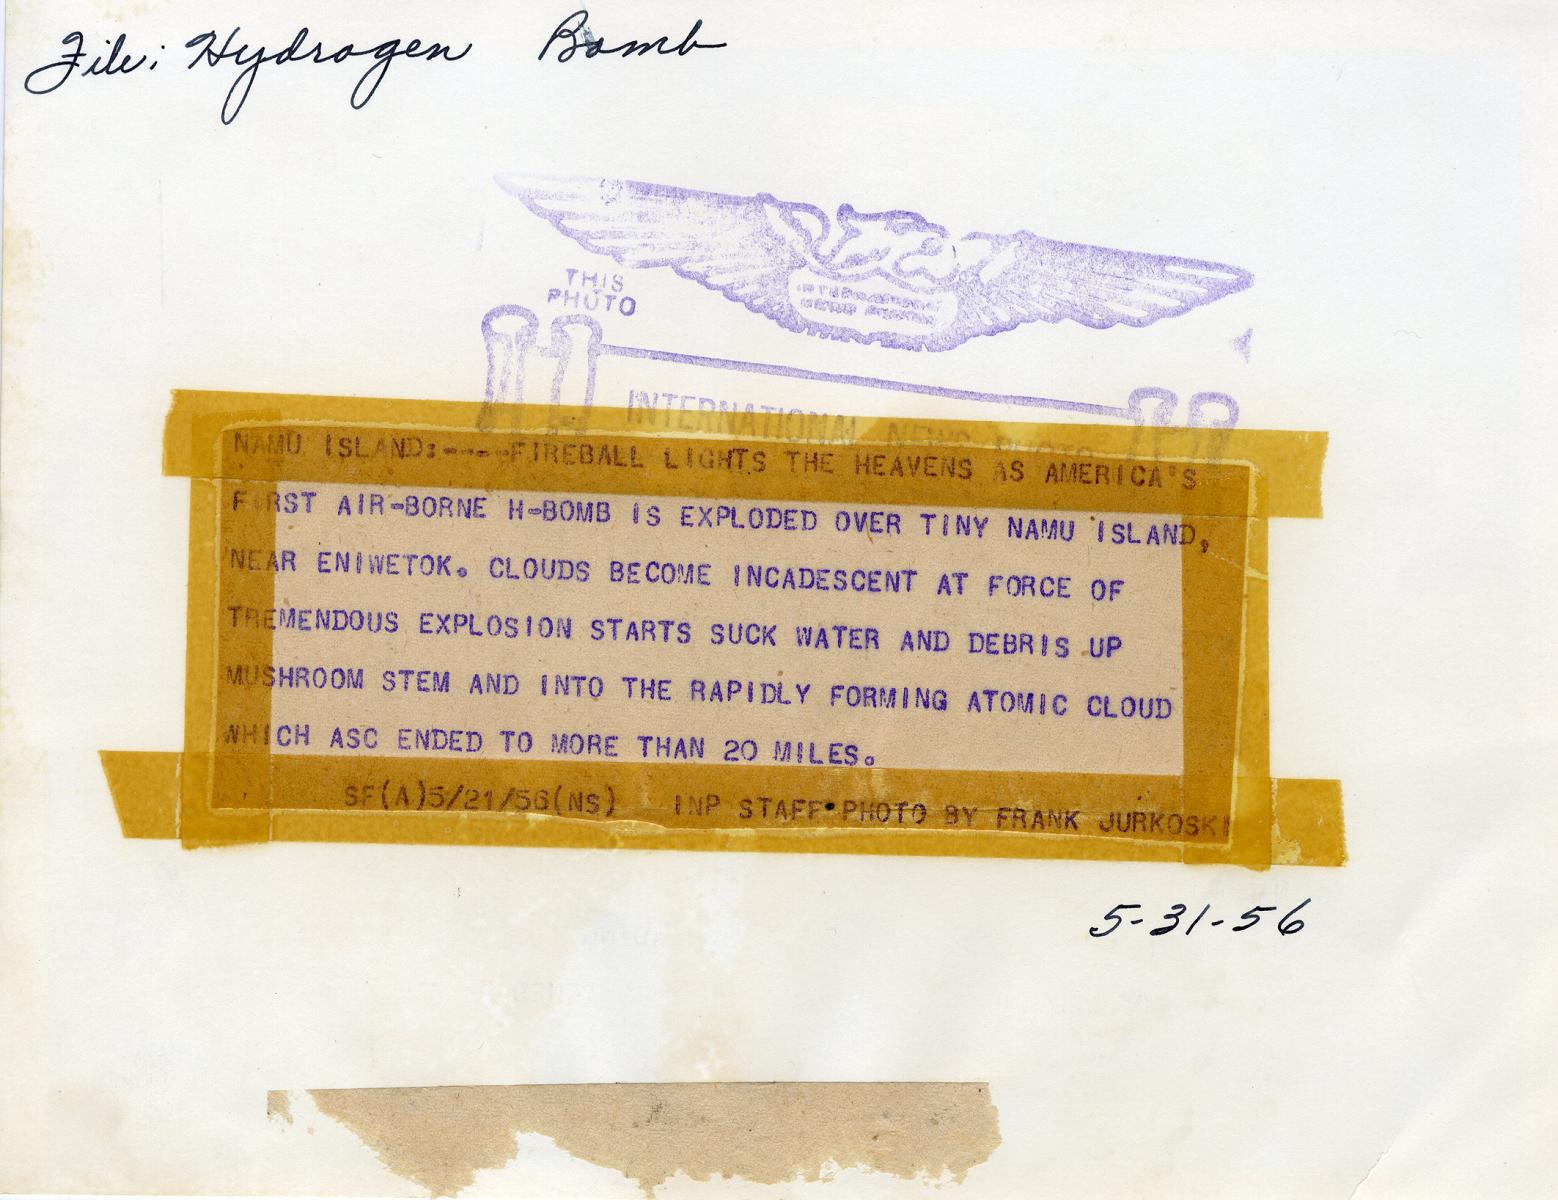 File: Hydrogen Bomb
THIS
PHOTO
INTERNATIONAL NEWS PHOTO
NAMU ISLAND:----FIREBALL LIGHTS THE HEAVENS AS AMERICA'S
FIRST AIR-BORNE H-BOMB IS EXPLODED OVER TINY NAMU ISLAND,
NEAR ENIWETOK. CLOUDS BECOME INCADESCENT AT FORCE OF
TREMENDOUS EXPLOSION STARTS SUCK WATER AND DEBRIS UP
MUSHROOM STEM AND INTO THE RAPIDLY FORMING ATOMIC CLOUD
WHICH ASC ENDED TO MORE THAN 20 MILES.
SF(A)5/21/56(NS) INP STAFF PHOTO BY FRANK JURKOSKI
5-31-56